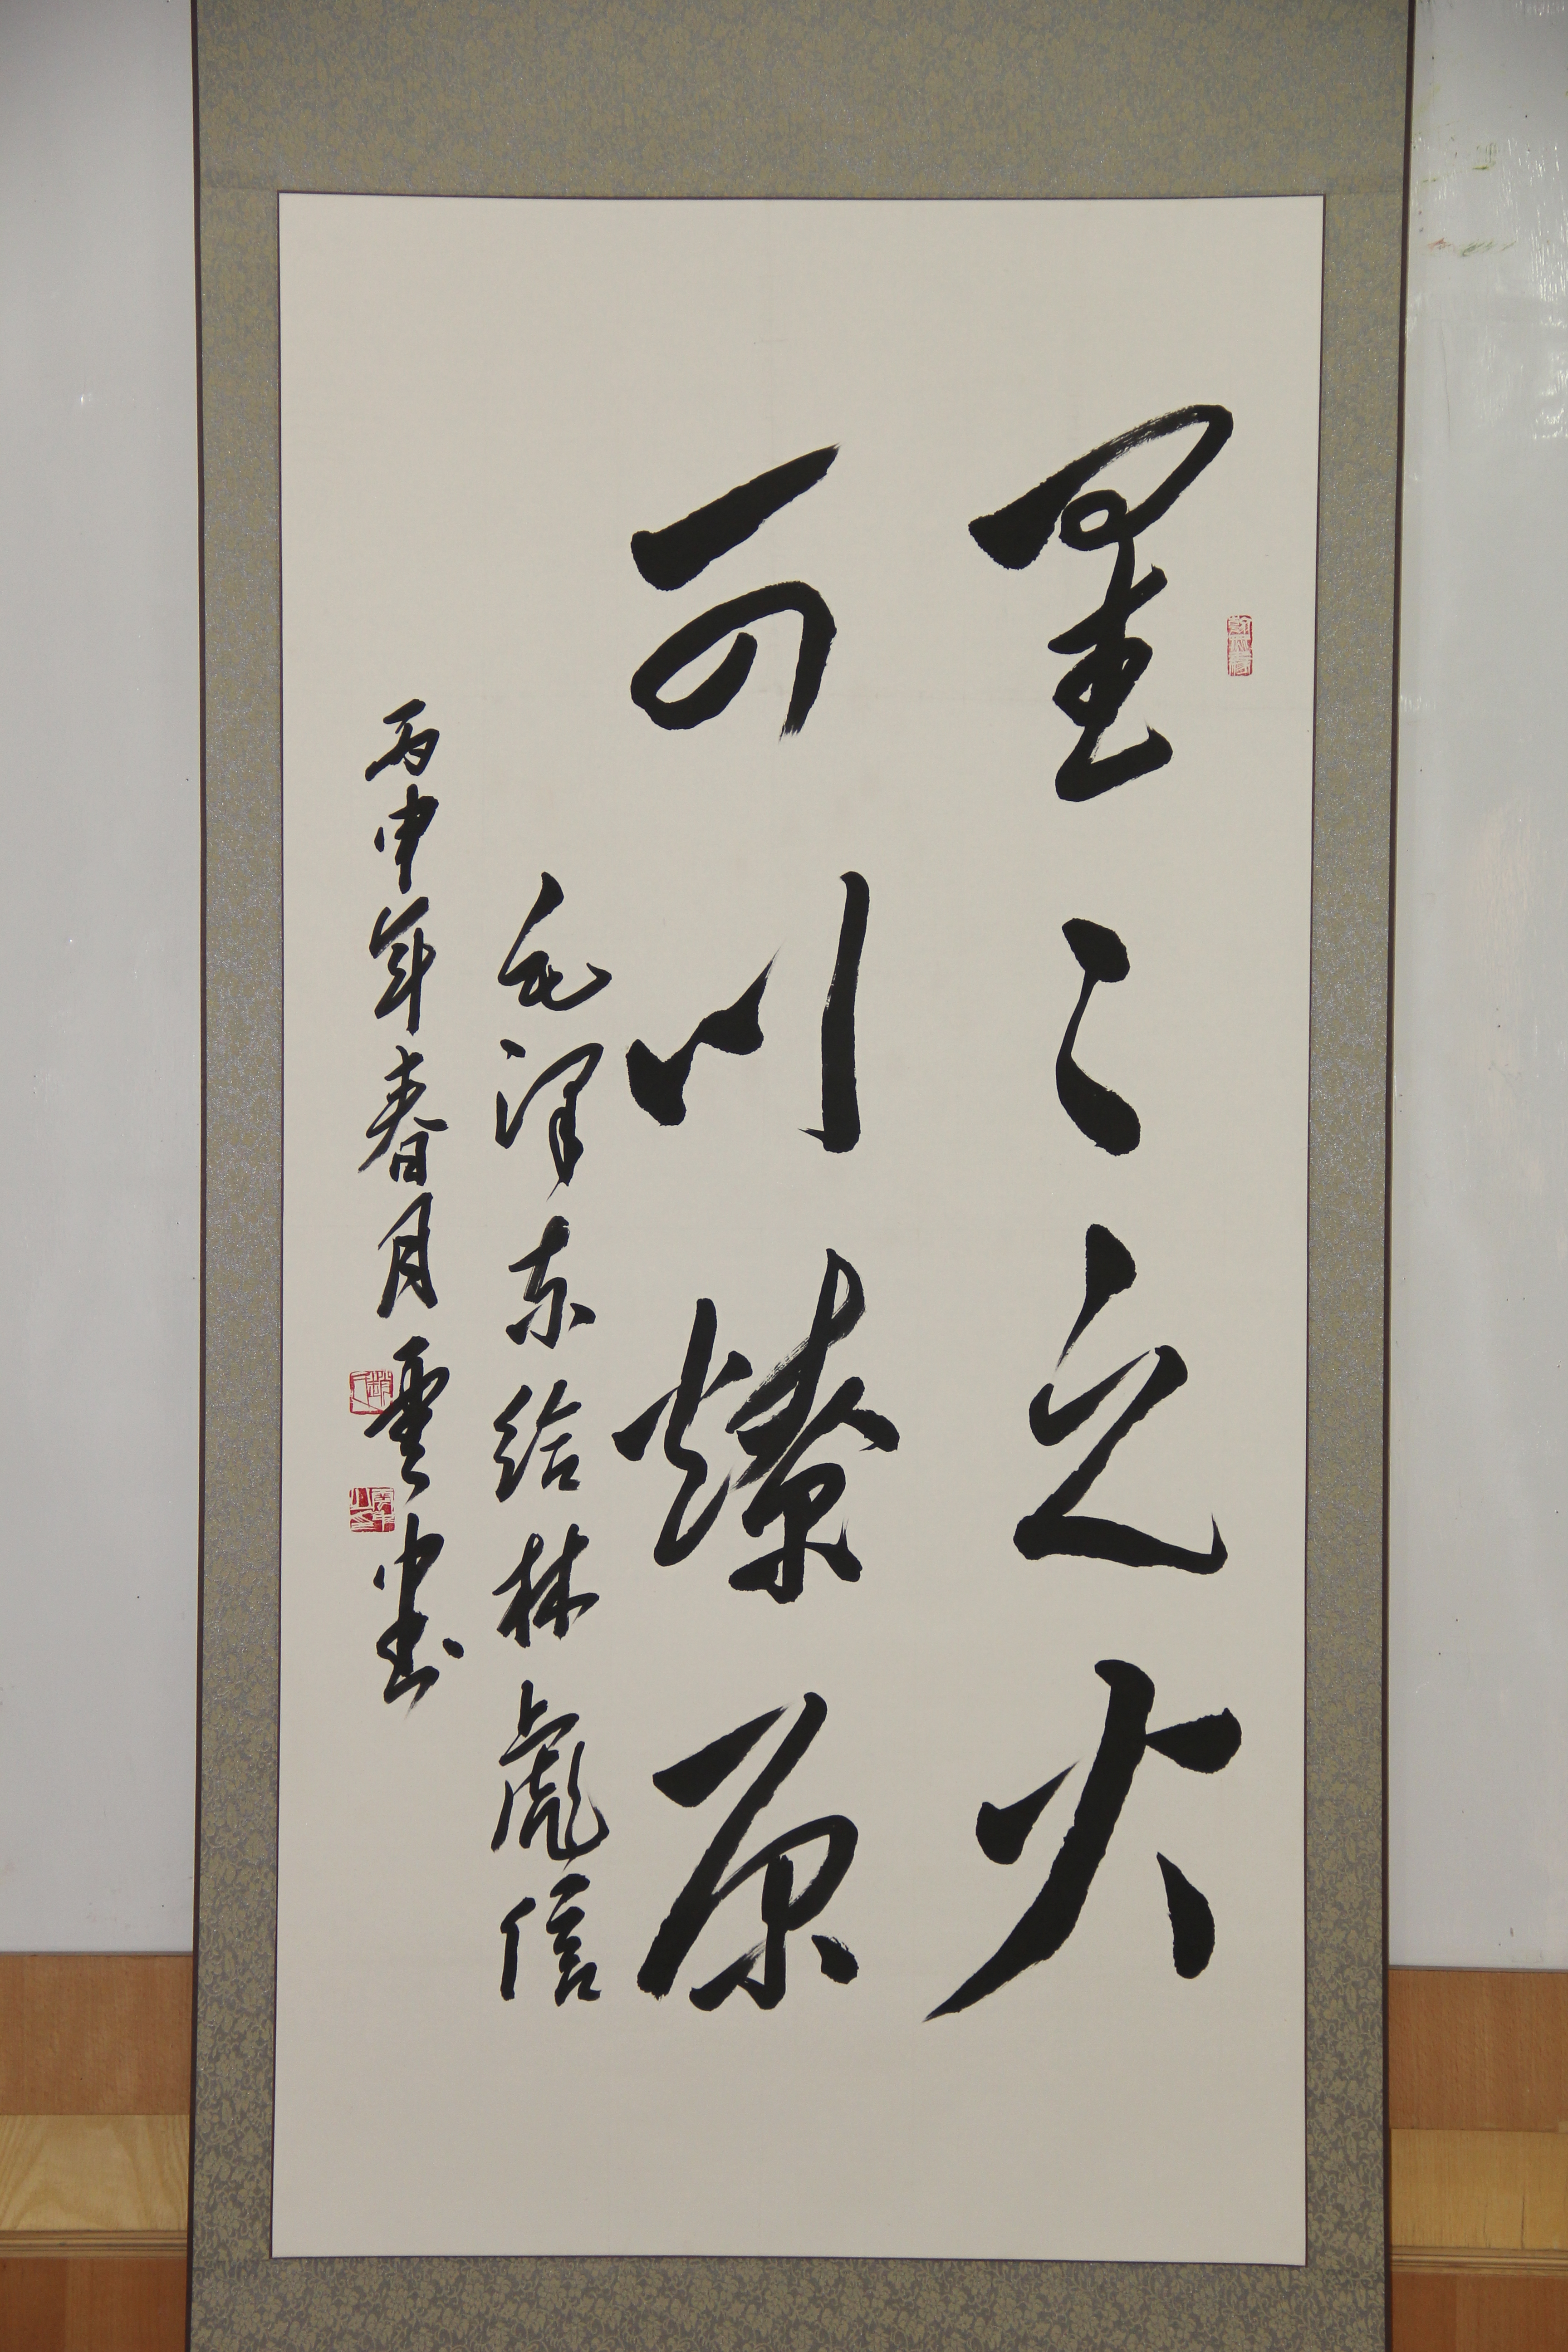 星星之火
可以燎原
毛泽东给林彪信
丙申年春月云中书